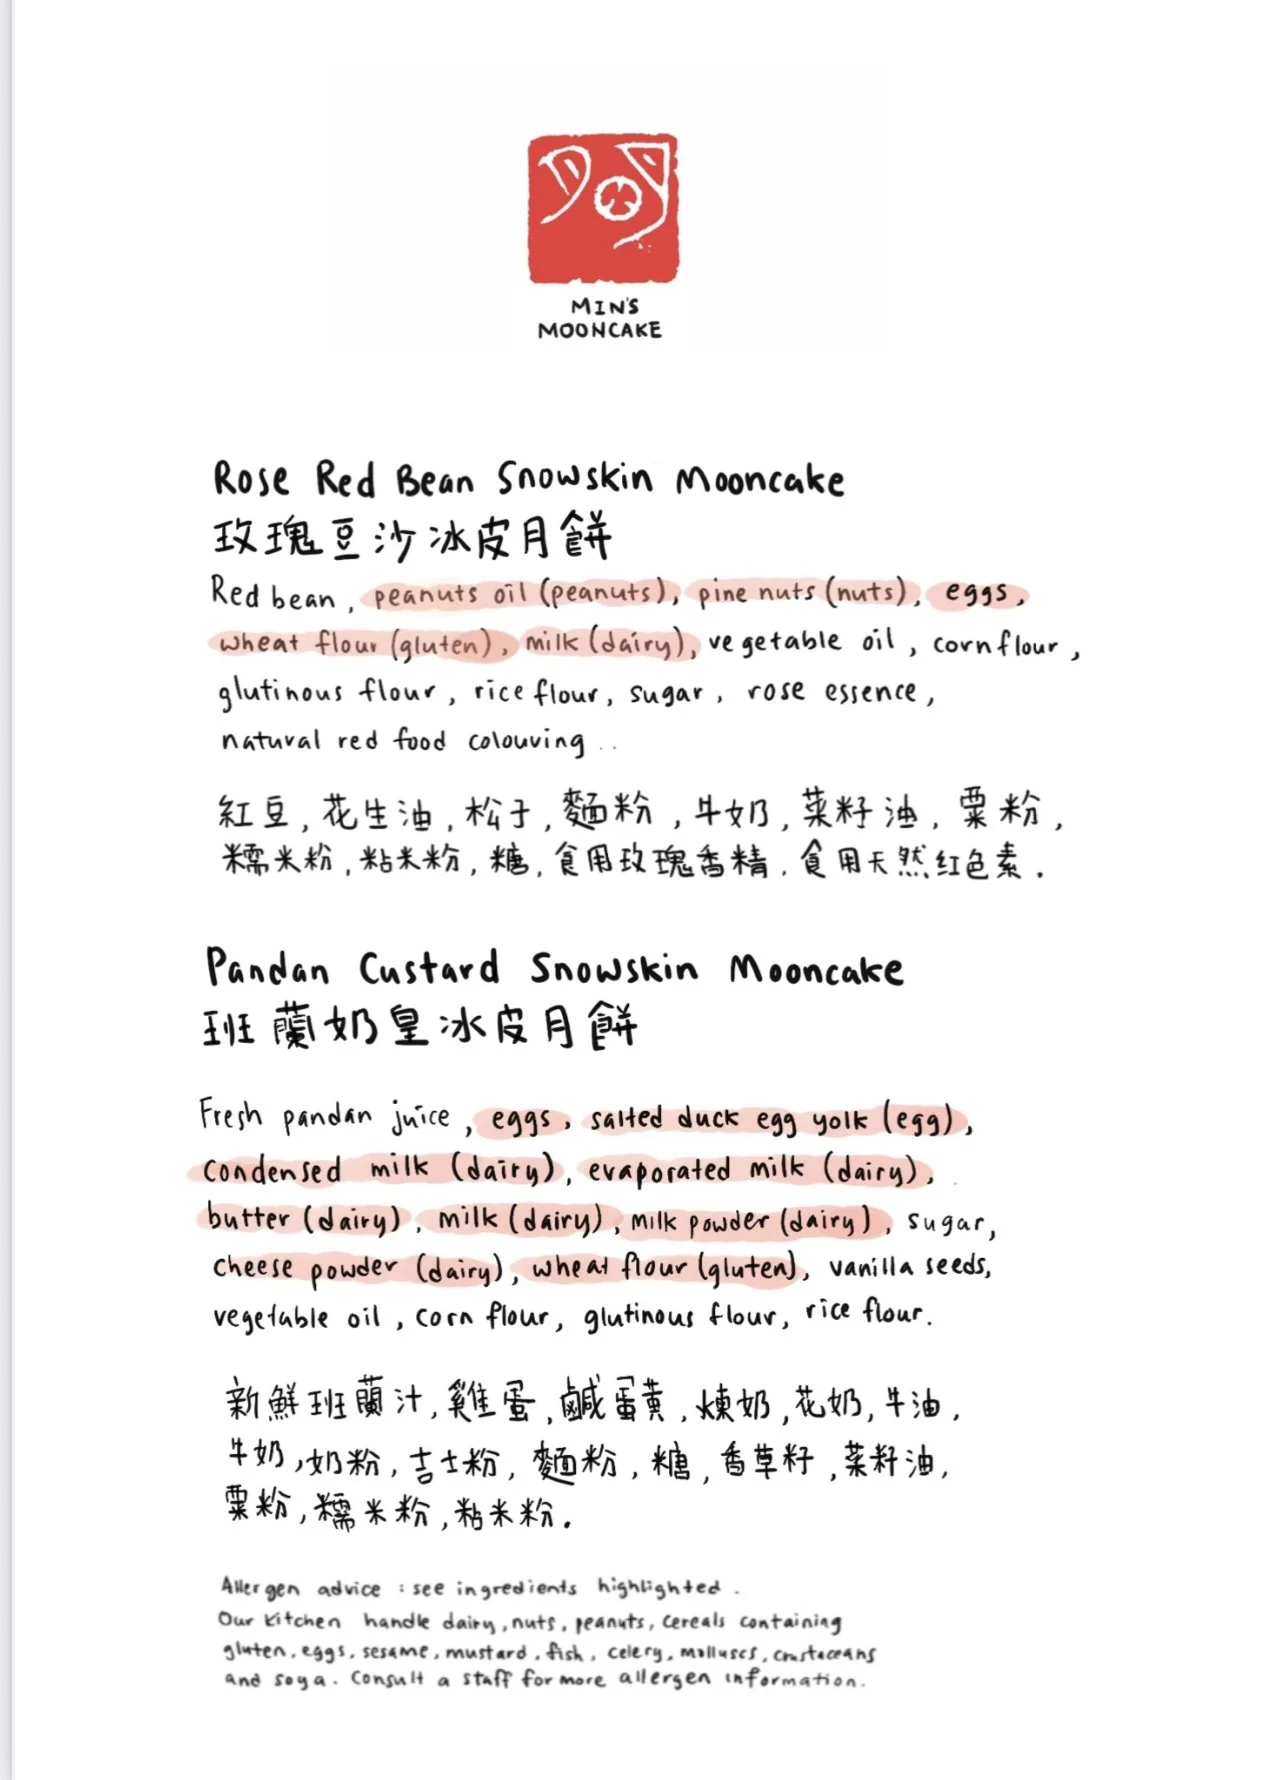 MIN'S
MOONCAKE
Rose Red Bean Snowskin Mooncake
玫瑰豆沙冰皮月餅
Red bean, peanuts oil (peanuts), pine nuts (nuts), eggs,
wheat flour (gluten), milk (dairy), vegetable oil, cornflour,
glutinous flour, rice flour, sugar, rose essence,
natural red food colouring..
紅豆,花生油,松子,麵粉,牛奶,菜籽油,粟粉,
糯米粉,粘米粉,糖,食用玫瑰香精,食用天然红色素.
Pandan Custard Snowskin Mooncake
班蘭奶皇冰皮月餅
Fresh pandan juice, eggs, salted duck egg yolk (egg),
condensed milk (dairy), evaporated milk (dairy),
butter (dairy), milk (dairy), milk powder (dairy), sugar,
cheese powder (dairy), wheat flour (gluten), vanilla seeds,
vegetable oil, corn flour, glutinous flour, rice flour.
新鮮班蘭汁,雞蛋,鹹蛋黄,煉奶,花奶,牛油,
牛奶,奶粉,吉士粉,麵粉,糖,香草籽,菜籽油,
粟粉,糯米粉,粘米粉.
Allergen advice : see ingredients highlighted.
Our kitchen handle dairy, nuts, peanuts, cereals containing
gluten, eggs, sesame, mustard, fish, celery, molluscs, crustaceans
and soya. Consult a staff for more allergen information.